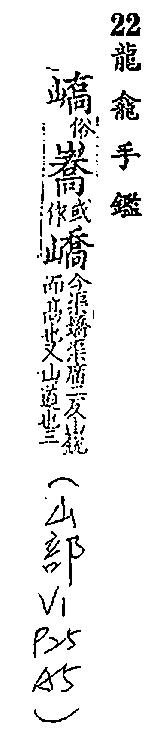 22 龍龕手鑑
嵪俗𡽹或作嶠今渠嬌渠廟二反山銳
而高也又山道也三
(山部 V1 P25 A5)